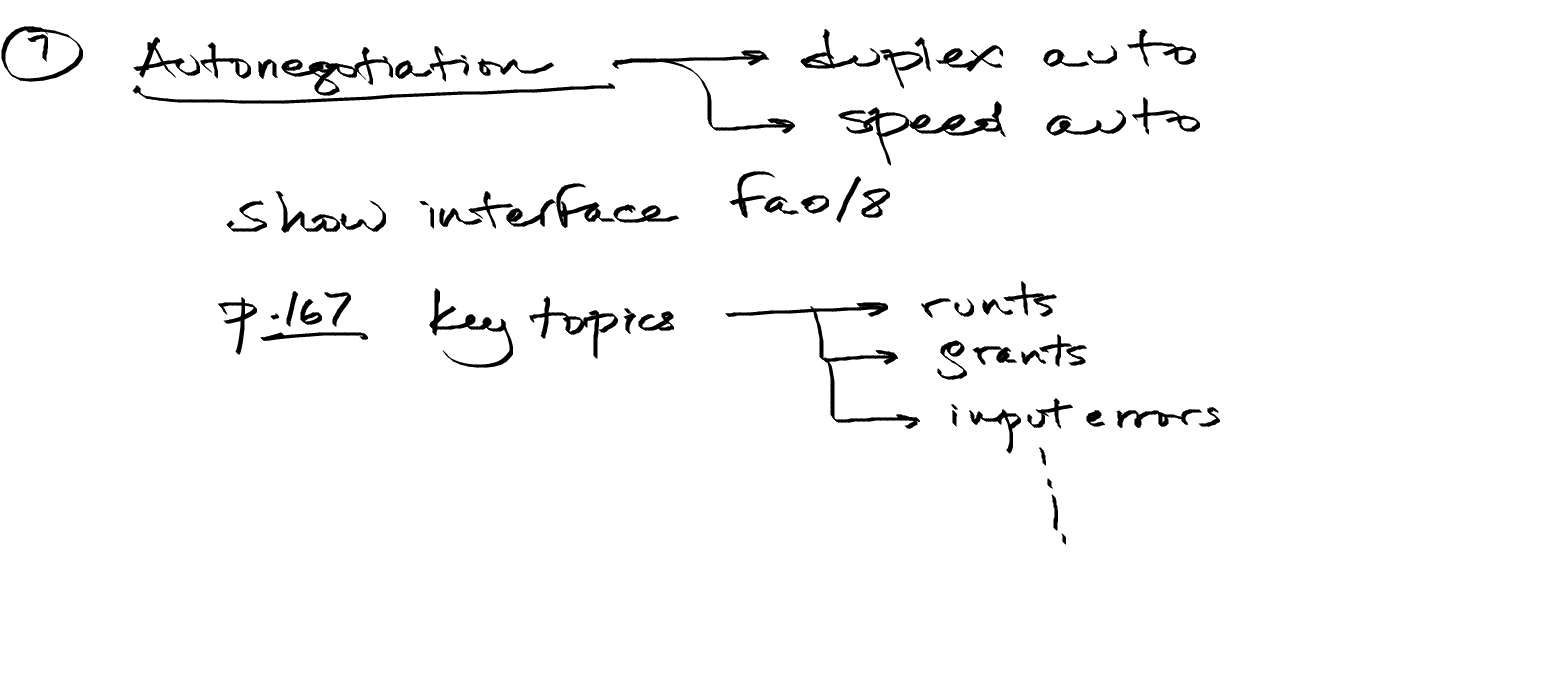 7 Autonegotiation → duplex auto
→ speed auto
show interface fa0/8
p.167 key topics → runts
→ grants
→ input errors